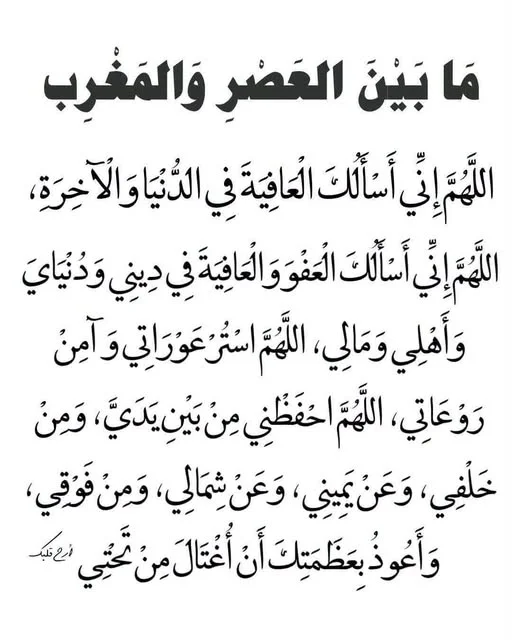 مَا بَيْنَ العَصْرِ وَالمَغْرِب
اللَّهُمَّ إِنِّي أَسْأَلُكَ الْعَافِيَةَ فِي الدُّنْيَا وَالْآخِرَةِ،
اللَّهُمَّ إِنِّي أَسْأَلُكَ الْعَفْوَ وَالْعَافِيَةَ فِي دِينِي وَدُنْيَايَ
وَأَهْلِي وَمَالِي، اللَّهُمَّ اسْتُرْ عَوْرَاتِي وَآمِنْ
رَوْعَاتِي، اللَّهُمَّ احْفَظْنِي مِنْ بَيْنِ يَدَيَّ، وَمِنْ
خَلْفِي، وَعَنْ يَمِينِي، وَعَنْ شِمَالِي، وَمِنْ فَوْقِي،
وَأَعُوذُ بِعَظَمَتِكَ أَنْ أُغْتَالَ مِنْ تَحْتِي